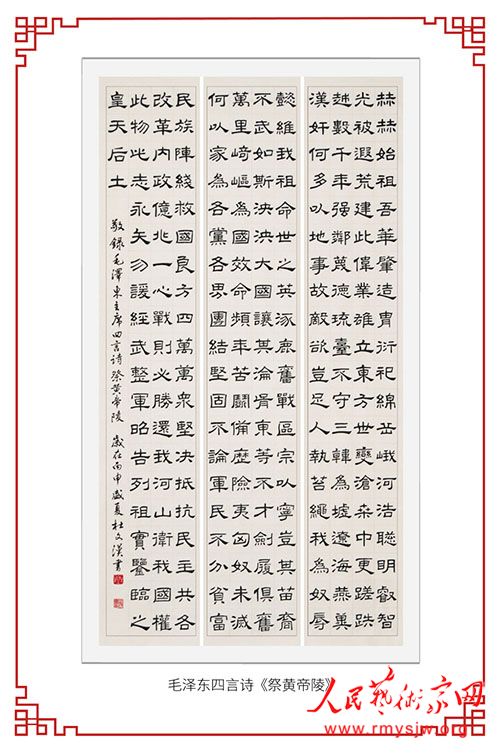 赫赫始祖吾華肇造胄衍祀綿岳峨河浩聰明叡智
光被遐荒建此偉業雄立東方世變滄桑中更蹉跌
越數千年强鄰蔑德琉臺不守三韓為墟遼海燕冀
漢奸何多以地事故敵欲豈足人執笞繩我為奴辱
懿維我祖命世之英涿鹿奮戰區宇以寧豈其苗裔
不武如斯泱泱大國讓其淪胥東等不才劍屨俱奮
萬里崎嶇為國效命頻年苦鬬備歷險夷匈奴未滅
何以家為各黨各界團結堅固不論軍民不分貧富
民族陣綫救國良方四萬萬衆堅決抵抗民主共和
改革內政億兆一心戰則必勝還我河山衛我國權
此物此志永矢勿諼經武整軍昭告列祖實鑒臨之
皇天后土
敬錄毛澤東主席四言詩祭黃帝陵 歲在丙申盛夏杜文漢書
毛泽东四言诗《祭黄帝陵》
人民藝術家网
www.rmysjw.org